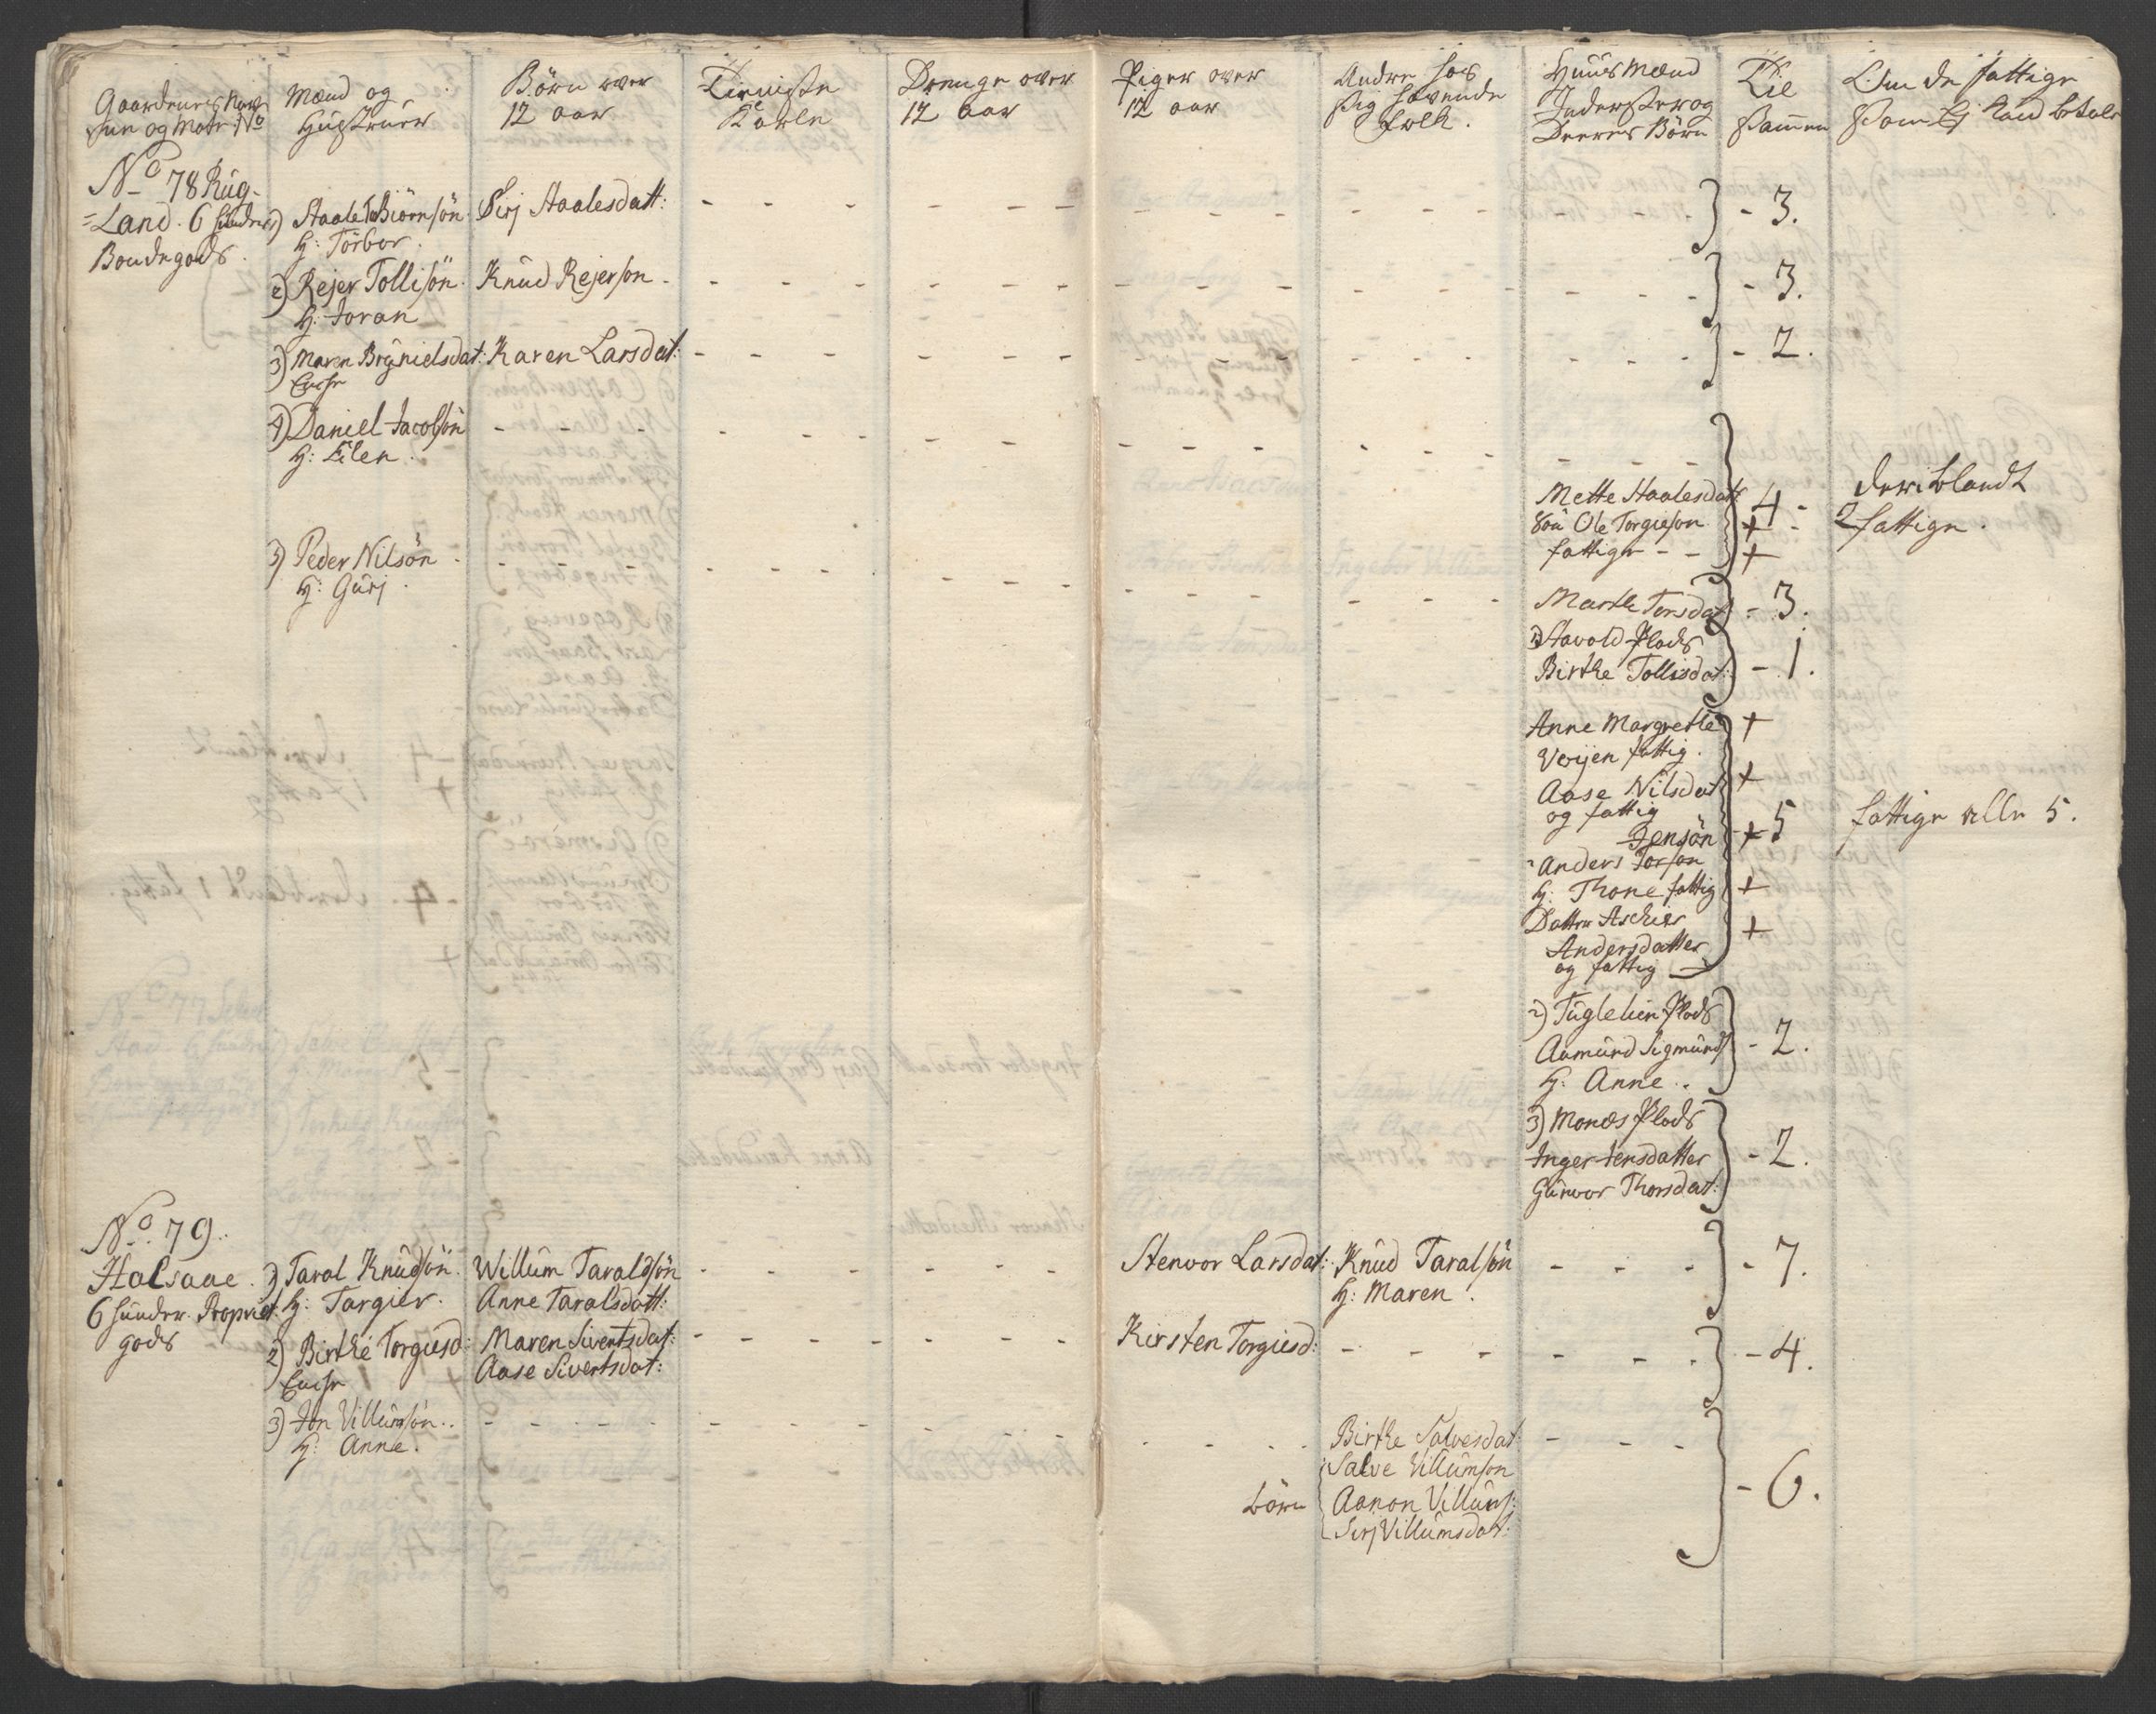 Gaardenes Nav-
ne og Matr: No
Mænd og
Hustruer
Børn over
12 aar
Tieniste
Karle
Drenge over
12 aar
Piger over
12 aar
Andre hos
sig havende
folk.
Huusmænd
Inderster og
Deeres Børn
Til
sammen
som Ej kand betale
No 78 Rug-
=Land. 6 hunder
Bondegods.
1) Staale Biörnsön
H: Törbor.
Sirj Staalesdatt:
- 3.
2) Rejer Tollisön.
H: Joran
Knud Rejerson
- 3.
3) Maren Brÿnielsdat:
Enche
Karen Larsdat:
- 2.
4) Daniel Jacobsön
H: Eilen.
Mette Staalesdatt
Sön Ole Torgieson
fattige - -
4 -
+ -
+
deriblandt
2 fattige.
5) Peder Nilsön
H: Gurj.
Marthe Torsdat
- 3.
1) Havold Plads
Birthe Tollisdat:
- 1.
Anne Margrethe
Verjen fattig.
Aase Nilsdat
og fattig
Jensön
Anders Torson
H: Thone fattig
Datter Aschier
Andersdatter
og fattig
+
+
+ 5
+
+
fattige alle 5.
2) Tuglelien Plads
Aamund Sigmunds
H: Anne.
- 2.
3) Monæs Plads
Inger Jensdatter
Gunvor Thorsdat:
- 2.
No 79.
Halsaae.
6 hunder. Propriet:
gods
1) Taral Knudsön.
H: Targier.
Willum Taraldsön
Anne Taralsdatt:
Stenvor Larsdat:
Knud Taralsön
H: Maren.
- 7.
2) Birthe Torgiesd:
Enche
Maren Sivertsdat:
Aase Sivertsdat:
Kirsten Torgiesd:
- 4.
3) Jon Villumsön..
H: Anne.
Birthe Salvesdat:
Salve Villumson
börn
Aanon Villums:
Sirj Villumsdat:
- 6.